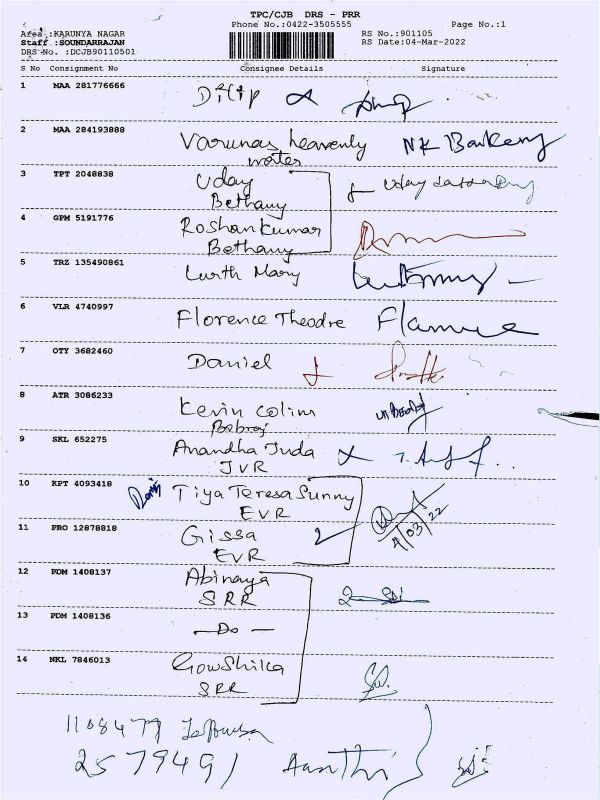 TPC/CJB DRS - PRR
Phone No.:0422-3505555 Page No.:1
Area :KARUNYA NAGAR RS No.:901105
Staff :SOUNDARRAJAN RS Date:04-Mar-2022
DRS-No. :DCJB90110501
S No Consignment No Consignee Details Signature
1 MAA 281776666 Dilip
2 MAA 284193888 Varunas heavenly NK Bankeny
water
3 TPT 2048838 Uday Uday
Bethany
4 GPM 5191776 Roshan Kumar
Bethany
5 TRZ 135490861 Lurth Mary
6 VLR 4740997 Florence Theodre
7 OTY 3682460 Daniel
8 ATR 3086233 Kevin Colim
9 SKL 652275 Anandha Juda
JVR
10 KPT 4093418 Tiya Teresa Sunny
EVR
4/03/22
11 PRO 12878818 Gissa
EVR
12 PDM 1408137 Abinaya
SRR
13 PDM 1408136 —Do—
14 NKL 7846013 Gowshika
SRR
1108477
2579491 Aarthi